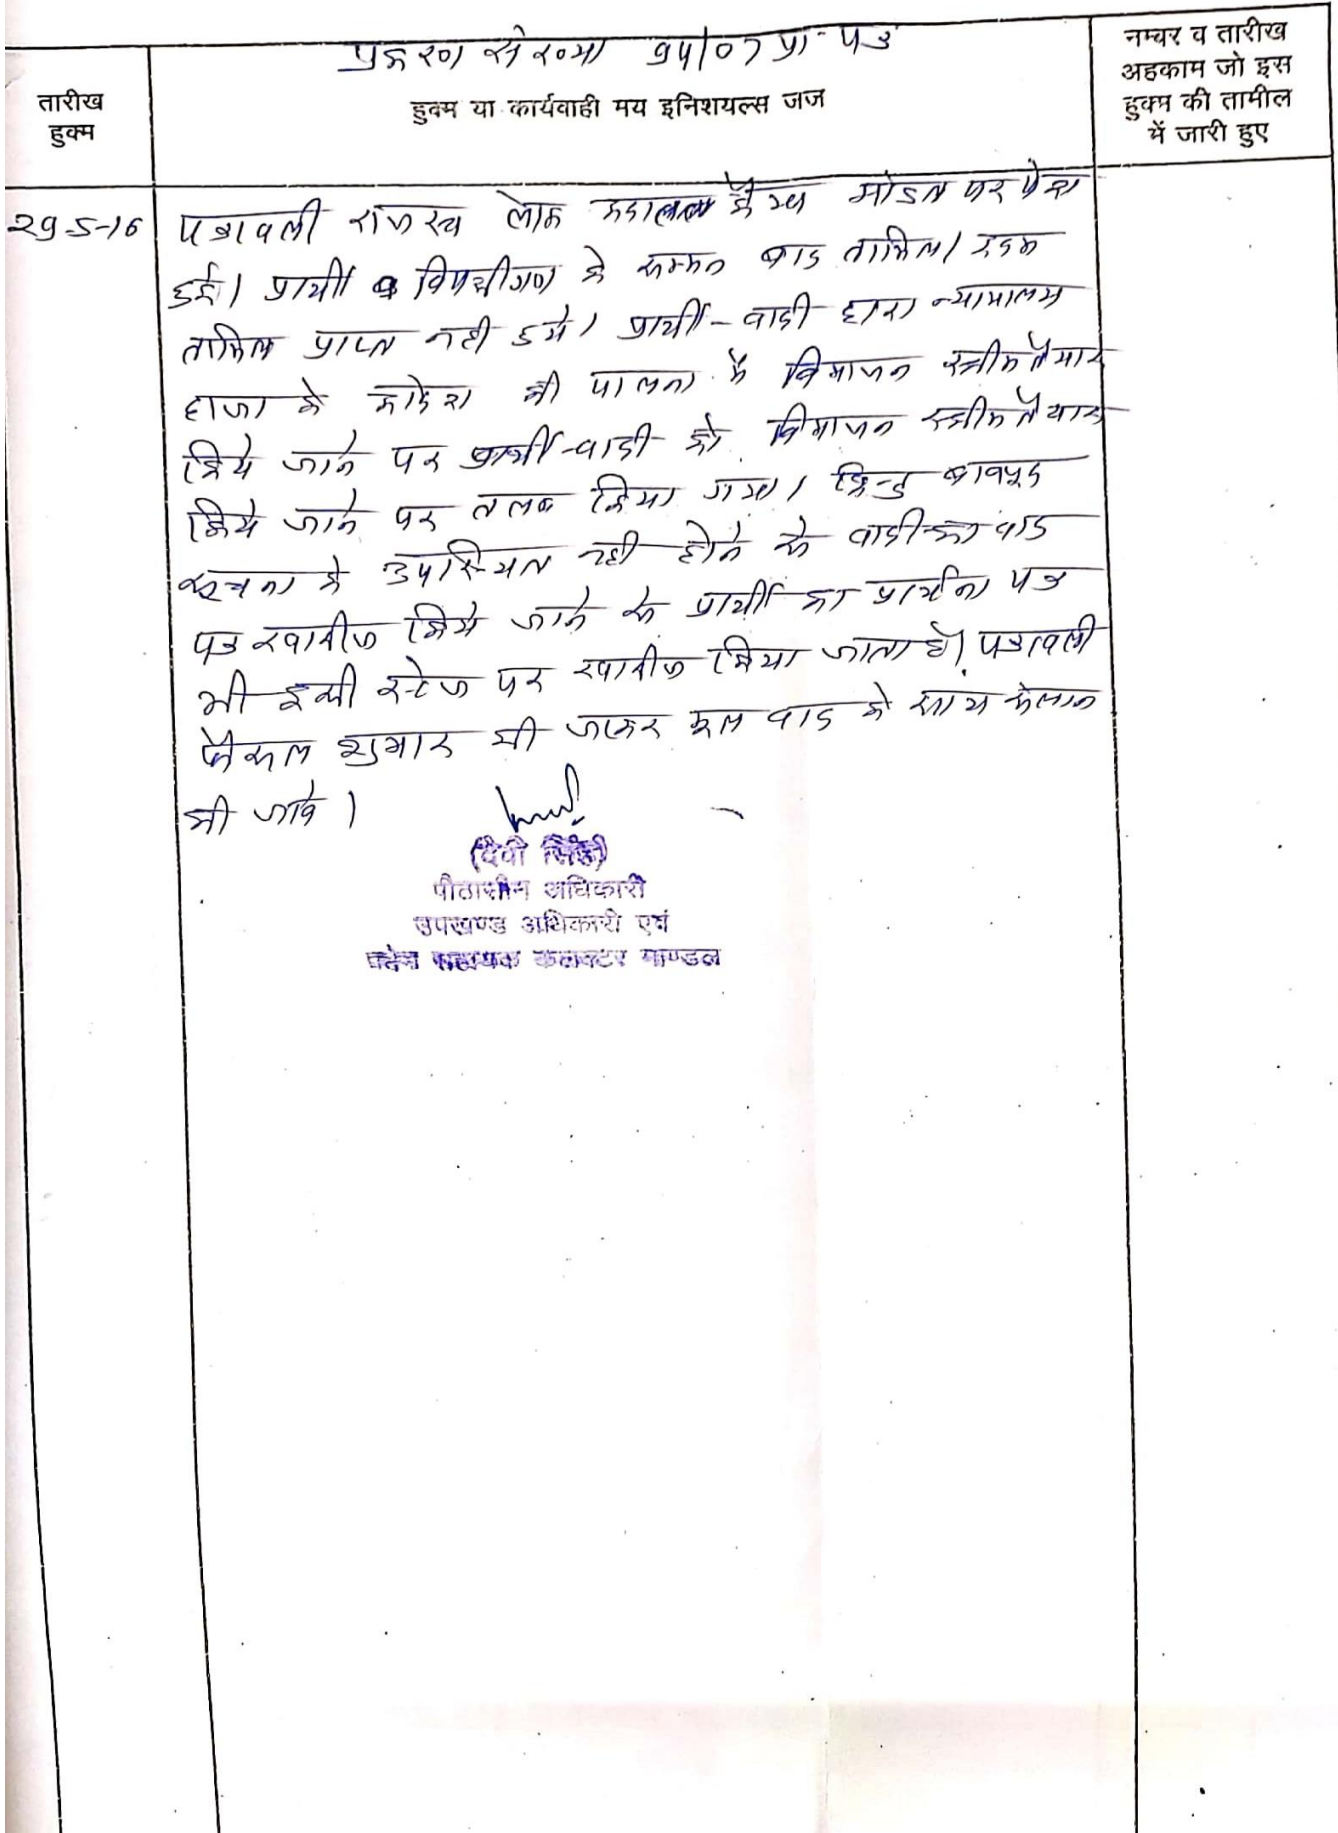 प्रकरण संख्या 94/07 प्रा. पत्र
तारीख
हुक्म
हुक्म या कार्यवाही मय इनिशयल्स जज
नम्बर व तारीख
अहकाम जो इस
हुक्म की तामील
में जारी हुए
29-5-16
पत्रावली राजस्व लोक अदालत कैम्प मांडल पर पेश
हुई। प्रार्थी व विपक्षीगण के सम्मन बाद तामिल/अदम
तामिल प्राप्त नही हुये। प्रार्थी-वादी द्वारा न्यायालय
हाजा के आदेश की पालना में विभाजन स्कीम तैयार
किये जाने पर प्रार्थी-वादी को विभाजन स्कीम तैयार
किये जाने पर तलब किया गया। किन्तु बावजूद
सूचना के उपस्थित नही होने से वादी का वाद
पत्र खारीज किये जाने से प्रार्थी का प्रार्थना पत्र
भी इसी स्टेज पर खारीज किया जाता है। पत्रावली
फैसल शुमार की जाकर मूल वाद के साथ संलग्न
की जावे।
(देवी सिंह)
पीठासीन अधिकारी
उपखण्ड अधिकारी एवं
पदेन सहायक कलक्टर माण्डल